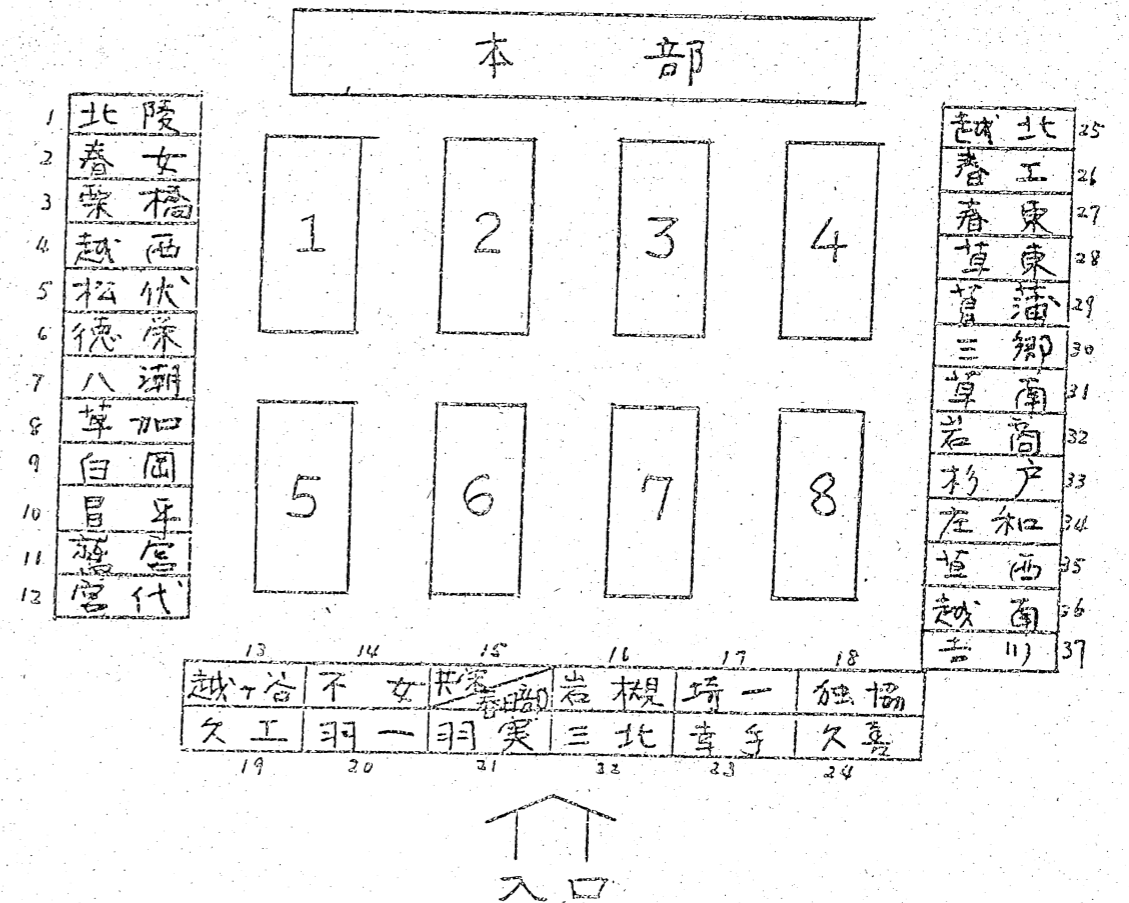 本部
1 北陵
2 春女
3 栗橋
4 越西
5 松伏
6 徳栄
7 八潮
8 草加
9 白岡
10 昌平
11 鷲宮
12 宮代
1 2 3 4
5 6 7 8
越北 25
春工 26
春東 27
草東 28
菖蒲 29
三郷 30
草南 31
岩商 32
杉戸 33
庄和 34
草西 35
越南 36
吉川 37
13 14 15 16 17 18
越ヶ谷 不女 共栄/春日部 岩槻 埼一 独協
久工 羽一 羽実 三北 幸手 久喜
19 20 21 22 23 24
入口